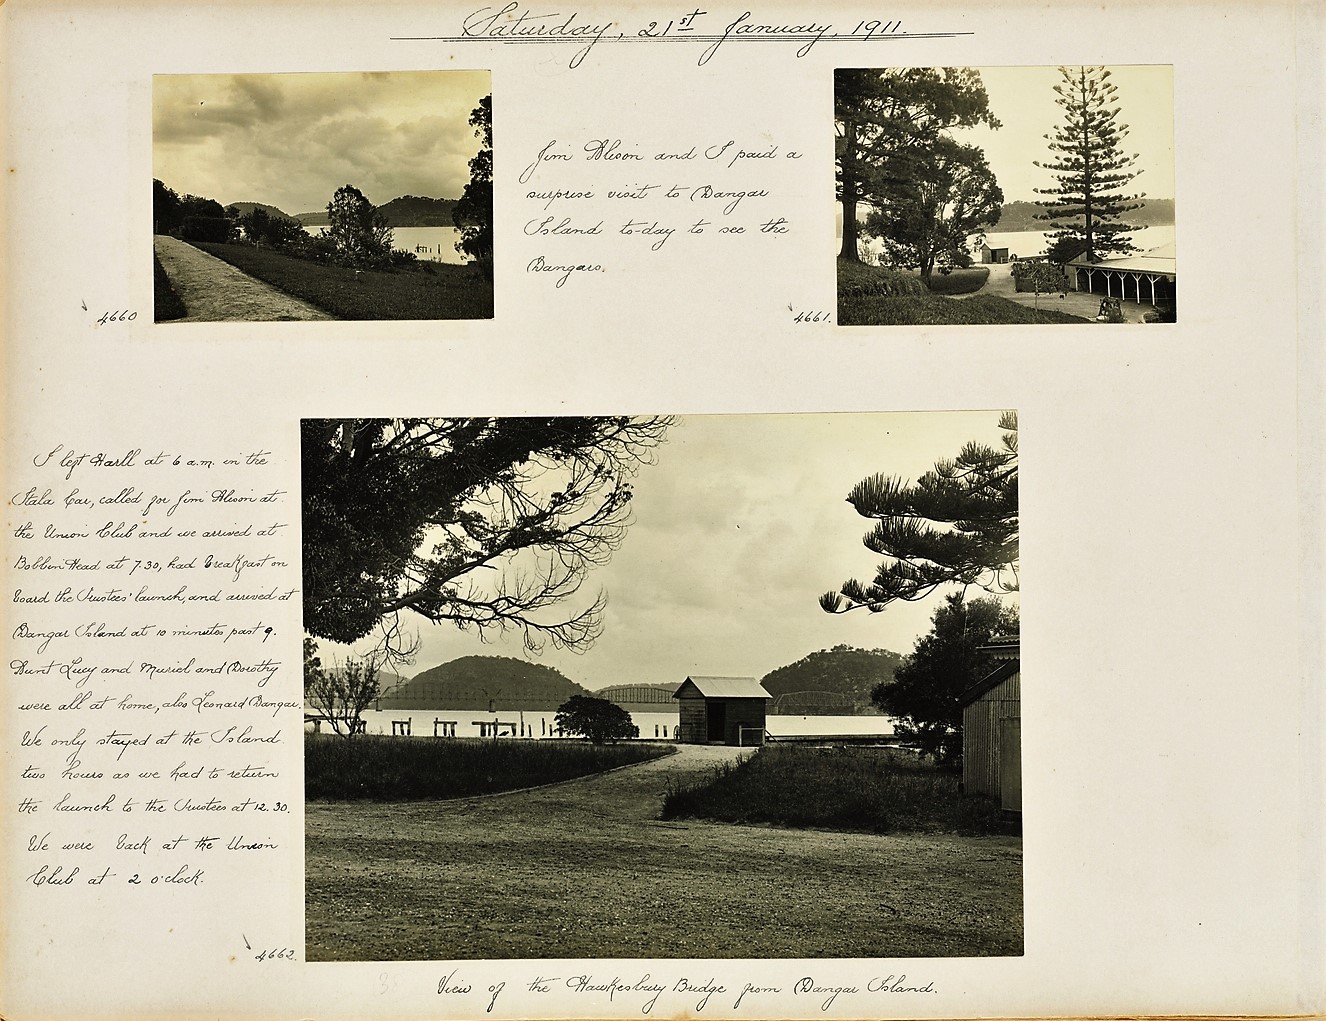 Saturday, 21st January, 1911.
Jim Alison and I paid a
surprise visit to Dangar
Island to-day to see the
Dangars.
4660
4661.
I left Harll at 6 a.m. in the
Itala Car, called for Jim Alison at
the Union Club and we arrived at
Bobbin Head at 7.30, had breakfast on
board the Trustees' launch, and arrived at
Dangar Island at 10 minutes past 9.
Aunt Lucy and Muriel and Dorothy
were all at home, also Leonard Dangar.
We only stayed at the Island
two hours as we had to return
the launch to the Trustees at 12.30.
We were back at the Union
Club at 2 o'clock.
4662.
View of the Hawkesbury Bridge from Dangar Island.